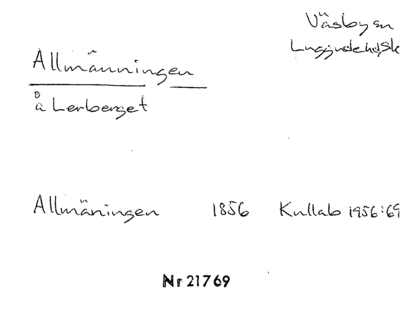 Väsby sn
Luggude hd, Sk
Allmänningen
å Lerberget
Allmäningen 1856 Kullab 1956:69
Nr 21769